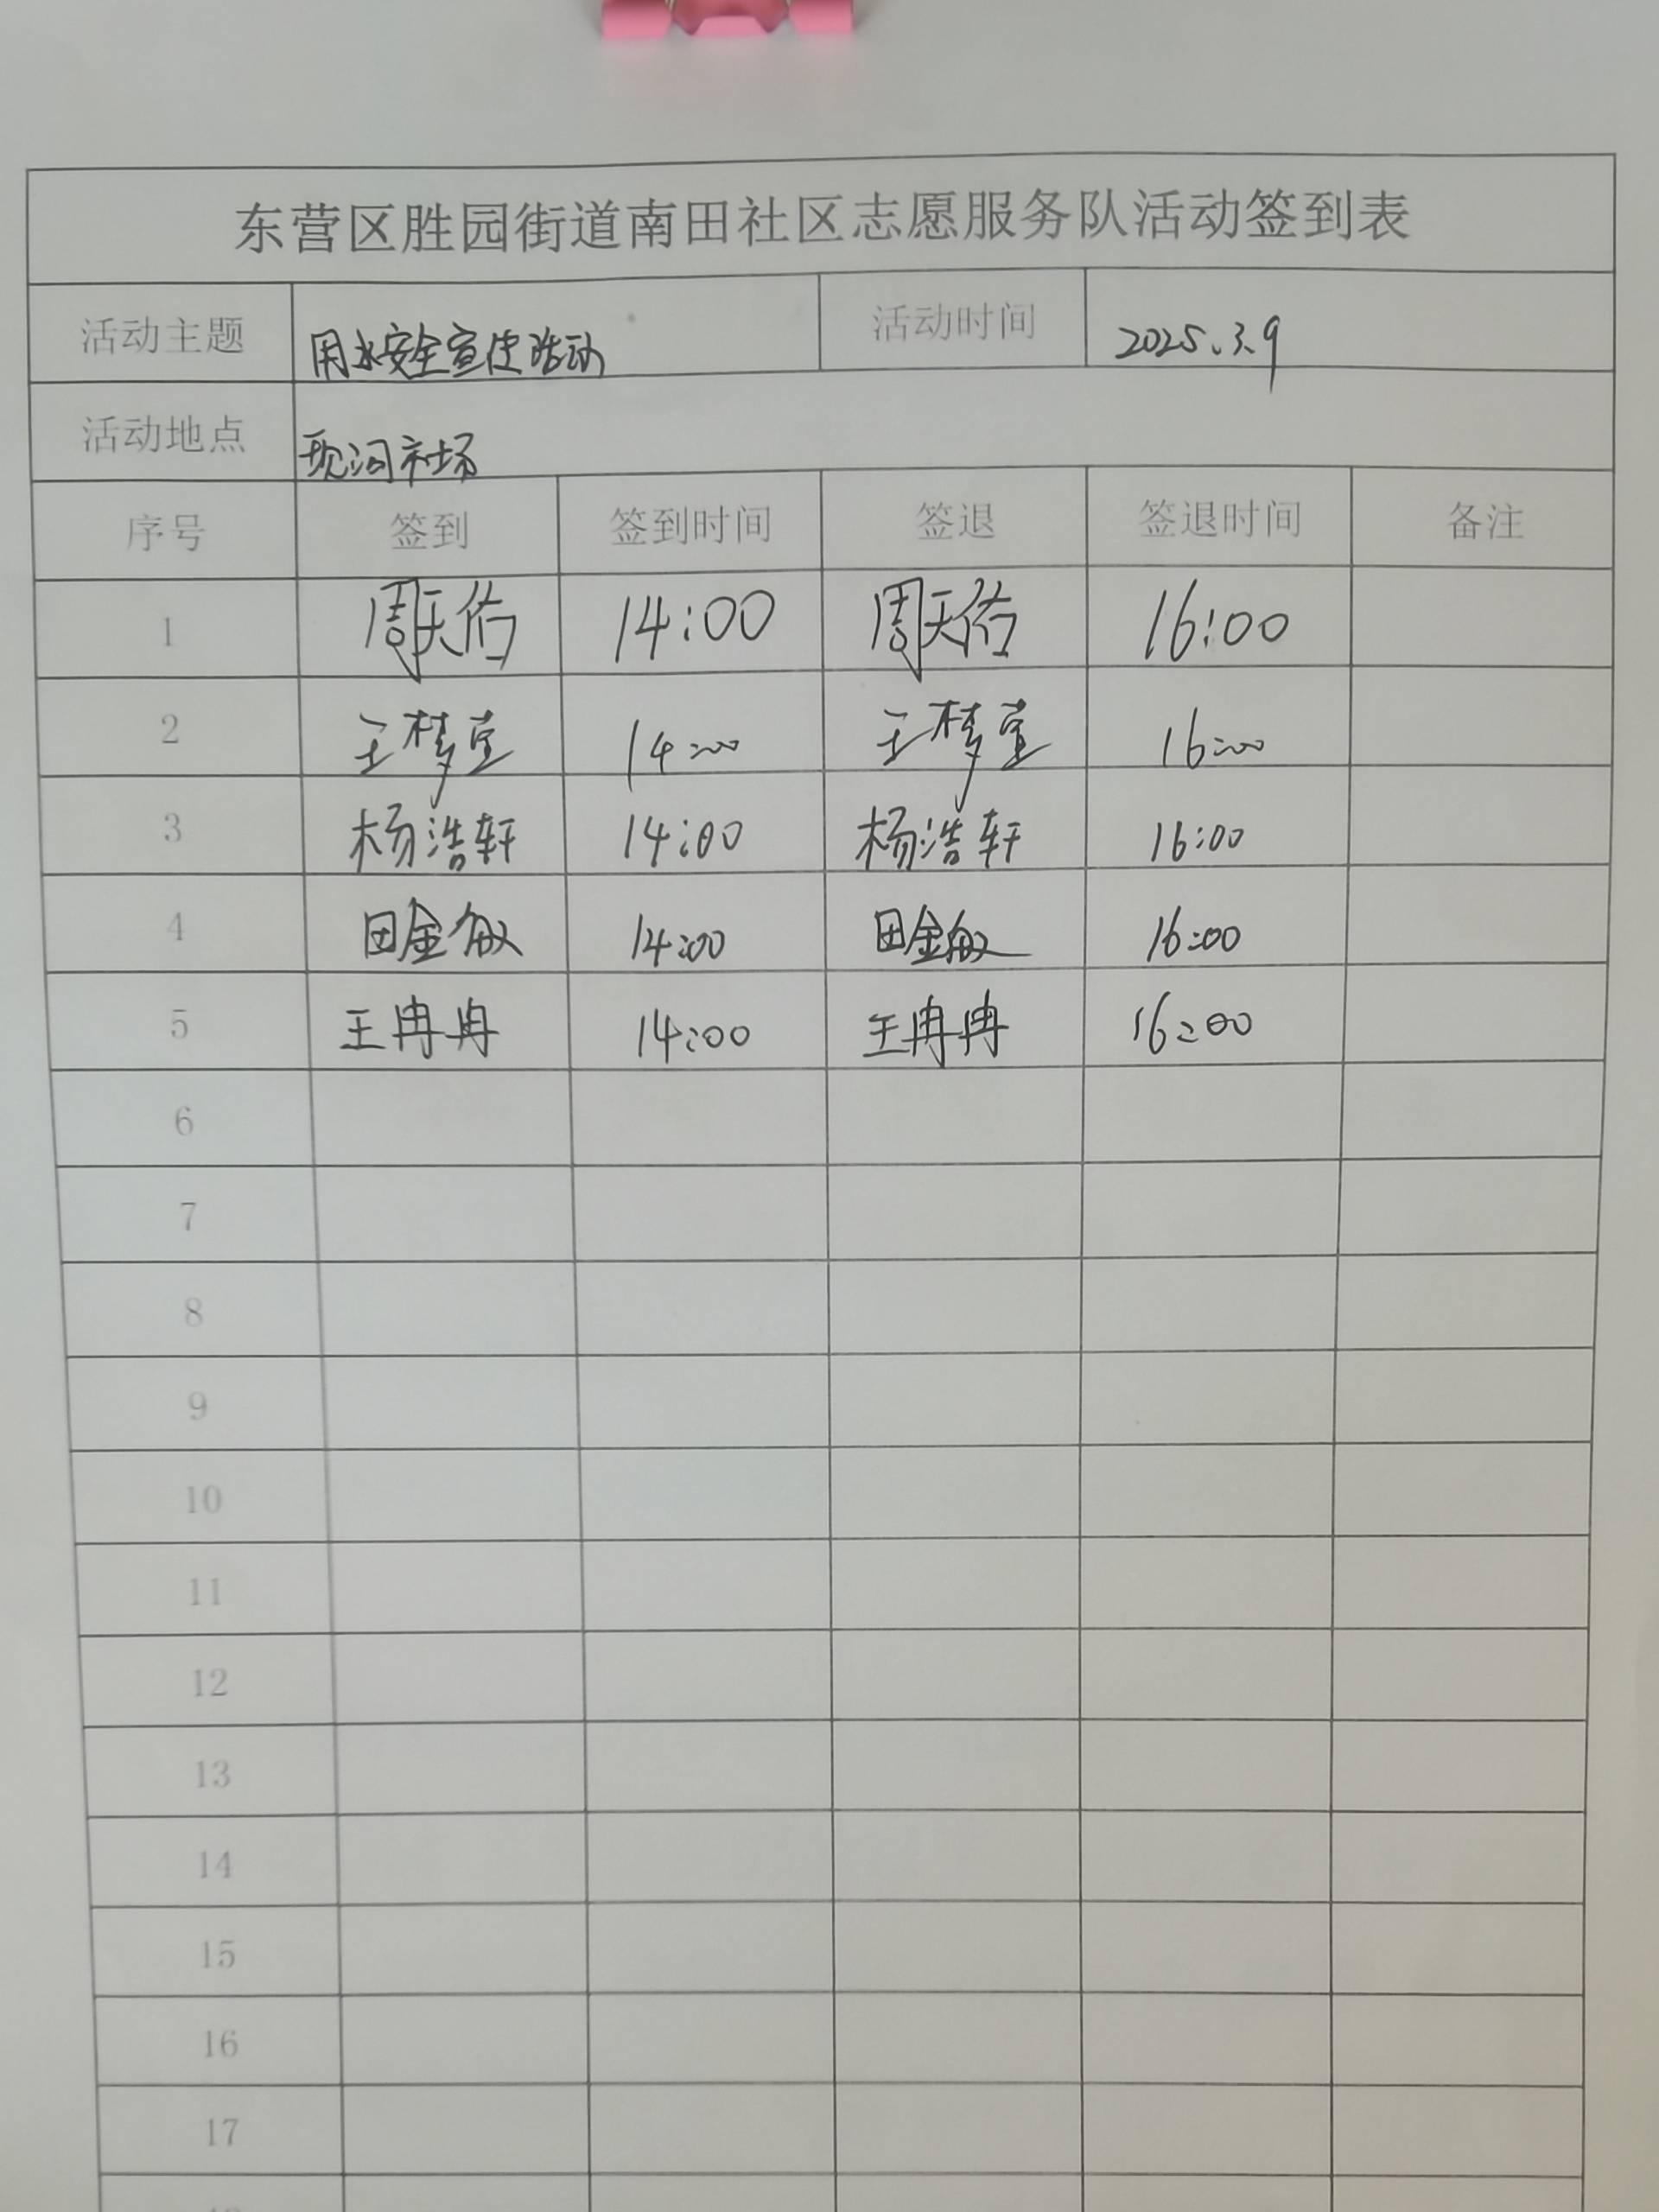 东营区胜园街道南田社区志愿服务队活动签到表
活动主题 用水安全宣传活动 活动时间 2025.3.9
活动地点 现河市场
序号 签到 签到时间 签退 签退时间 备注
1 周天佑 14:00 周天佑 16:00
2 王梦萱 14:00 王梦萱 16:00
3 杨浩轩 14:00 杨浩轩 16:00
4 田金敏 14:00 田金敏 16:00
5 王冉冉 14:00 王冉冉 16:00
6
7
8
9
10
11
12
13
14
15
16
17